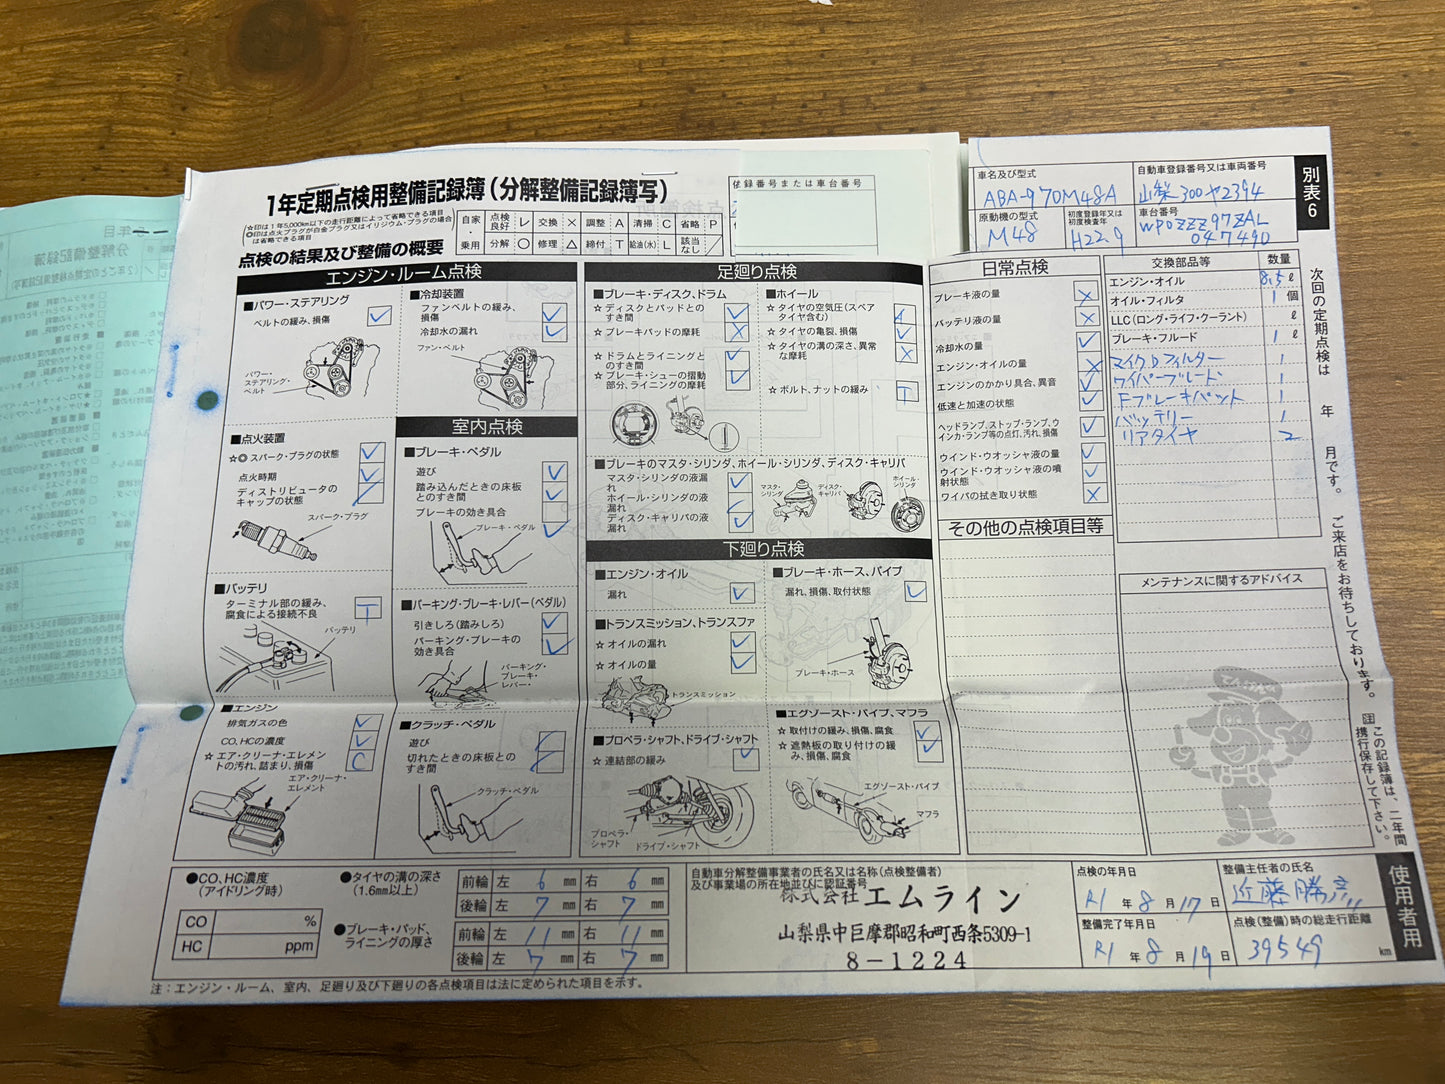 1年定期点検用整備記録簿(分解整備記録簿写)
☆印は1年5,000km以下の走行距離によって省略できる項目
◎印は点火プラグが白金プラグ又はイリジウム・プラグの場合
は省略できる項目
自家・乗用
点検良好 レ 交換 × 調整 A 清掃 C 省略 P
分解 ○ 修理 △ 締付 T 給油(水) L 該当なし /
依録番号または車台番号
車名及び型式
ABA-970M48A
自動車登録番号又は車両番号
山梨300ヤ2394
原動機の型式
M48
初度登録年又は初度検査年
H22.9
車台番号
WP0ZZZ97ZAL
047490
別表6
点検の結果及び整備の概要
エンジン・ルーム点検
■パワー・ステアリング
ベルトの緩み、損傷 レ
パワー・ステアリング・ベルト
■冷却装置
ファンベルトの緩み、損傷 レ
冷却水の漏れ レ
ファン・ベルト
■点火装置
☆◎ スパーク・プラグの状態 レ
点火時期 レ
ディストリビュータのキャップの状態 /
スパーク・プラグ
■バッテリ
ターミナル部の緩み、腐食による接続不良 T
バッテリ
■エンジン
排気ガスの色 レ
CO、HCの濃度 レ
☆ エア・クリーナ・エレメントの汚れ、詰まり、損傷 C
エア・クリーナ・エレメント
室内点検
■ブレーキ・ペダル
遊び レ
踏み込んだときの床板とのすき間 レ
ブレーキの効き具合 レ
ブレーキ・ペダル
■パーキング・ブレーキ・レバー(ペダル)
引きしろ(踏みしろ) レ
パーキング・ブレーキの効き具合 レ
パーキング・ブレーキ・レバー・
■クラッチ・ペダル
遊び /
切れたときの床板とのすき間 /
クラッチ・ペダル
足廻り点検
■ブレーキ・ディスク、ドラム
☆ ディスクとパッドとのすき間 レ
☆ ブレーキパッドの摩耗 ×
☆ ドラムとライニングとのすき間 レ
☆ ブレーキ・シューの摺動部分、ライニングの摩耗 レ
■ホイール
☆ タイヤの空気圧(スペアタイヤ含む) A
☆ タイヤの亀裂、損傷 レ
☆ タイヤの溝の深さ、異常な摩耗 ×
☆ ボルト、ナットの緩み T
■ブレーキのマスタ・シリンダ、ホイール・シリンダ、ディスク・キャリパ
マスタ・シリンダの液漏れ レ
ホイール・シリンダの液漏れ
ディスク・キャリパの液漏れ レ
マスタ・シリンダ
ディスク・キャリパ
ホイール・シリンダ
下廻り点検
■エンジン・オイル
漏れ レ
■トランスミッション、トランスファ
☆ オイルの漏れ レ
☆ オイルの量 レ
トランスミッション
■プロペラ・シャフト、ドライブ・シャフト
☆ 連結部の緩み レ
プロペラ・シャフト
ドライブ・シャフト
■ブレーキ・ホース、パイプ
漏れ、損傷、取付状態 レ
ブレーキ・ホース
■エグゾースト・パイプ、マフラ
☆ 取付けの緩み、損傷、腐食 レ
☆ 遮熱板の取り付けの緩み、損傷、腐食 レ
エグゾースト・パイプ
マフラ
日常点検
ブレーキ液の量 ×
バッテリ液の量 ×
冷却水の量 レ
エンジン・オイルの量 ×
エンジンのかかり具合、異音 レ
低速と加速の状態 レ
ヘッドランプ、ストップ・ランプ、ウインカ・ランプ等の点灯、汚れ、損傷 レ
ウインド・ウオッシャ液の量 レ
ウインド・ウオッシャ液の噴射状態 レ
ワイパの拭き取り状態 ×
その他の点検項目等
交換部品等 数量
エンジン・オイル 8.5 ℓ
オイル・フィルタ 1 個
LLC(ロング・ライフ・クーラント) ℓ
ブレーキ・フルード 1 ℓ
マイクロフィルター 1
ワイパーブレード 1
Fブレーキパット 1
バッテリー 1
リアタイヤ 2
メンテナンスに関するアドバイス
次回の定期点検は 年 月です。 ご来店をお待ちしております。
注 この記録簿は、二年間携行保存して下さい。
使用者用
●CO、HC濃度
(アイドリング時)
CO %
HC ppm
●タイヤの溝の深さ
(1.6mm以上)
前輪 左 6 mm 右 6 mm
後輪 左 7 mm 右 7 mm
●ブレーキ・パッド、
ライニングの厚さ
前輪 左 11 mm 右 11 mm
後輪 左 7 mm 右 7 mm
自動車分解整備事業者の氏名又は名称(点検整備者)
及び事業場の所在地並びに認証番号
株式会社エムライン
山梨県中巨摩郡昭和町西条5309-1
8-1224
点検の年月日
R1 年 8 月 17 日
整備完了年月日
R1 年 8 月 19 日
整備主任者の氏名
近藤勝彦
点検(整備)時の総走行距離
39549 km
注：エンジン・ルーム、室内、足廻り及び下廻りの各点検項目は法に定められた項目を示す。
分解整備記録簿